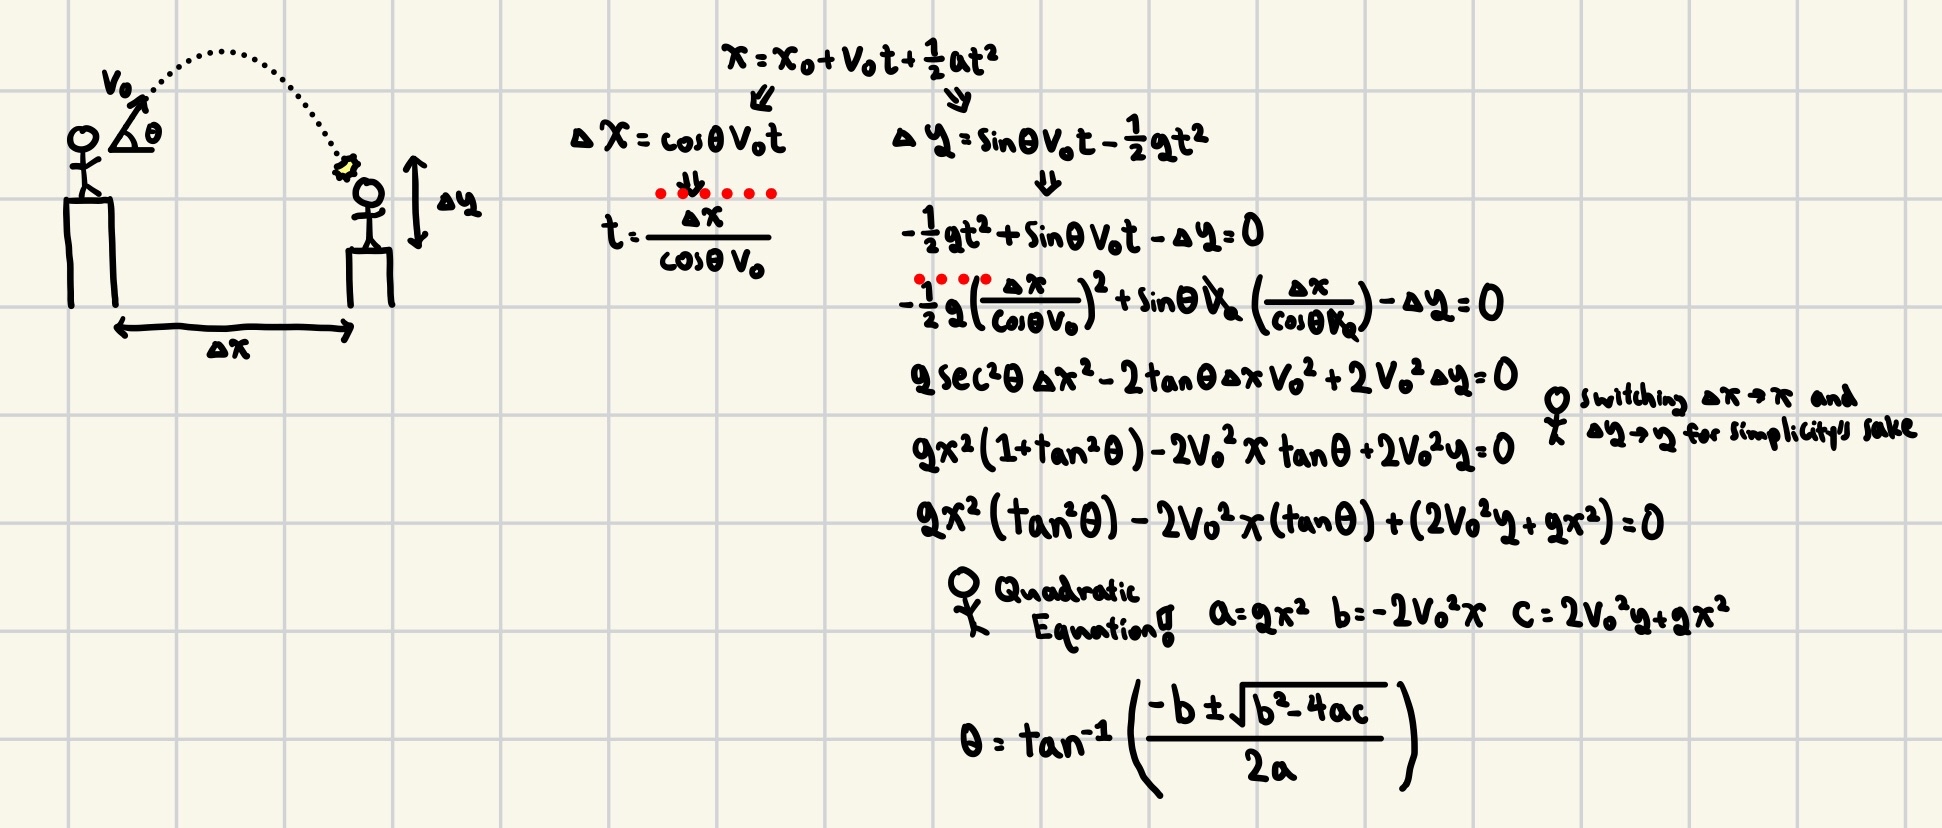 V₀
θ
Δy
Δx
x = x₀ + V₀t + ½at²
⇙ ⇘
Δx = cosθV₀t
⇓
t = Δx / (cosθ V₀)
Δy = sinθV₀t - ½gt²
⇓
-½gt² + sinθV₀t - Δy = 0
-½g(Δx / (cosθV₀))² + sinθV₀(Δx / (cosθV₀)) - Δy = 0
g sec²θ Δx² - 2tanθΔxV₀² + 2V₀²Δy = 0
switching Δx → x and
Δy → y for simplicity's sake
gx²(1+tan²θ) - 2V₀²x tanθ + 2V₀²y = 0
gx²(tan²θ) - 2V₀²x(tanθ) + (2V₀²y + gx²) = 0
Quadratic
Equation! a = gx² b = -2V₀²x c = 2V₀²y + gx²
θ = tan⁻¹((-b ± √(b² - 4ac)) / 2a)